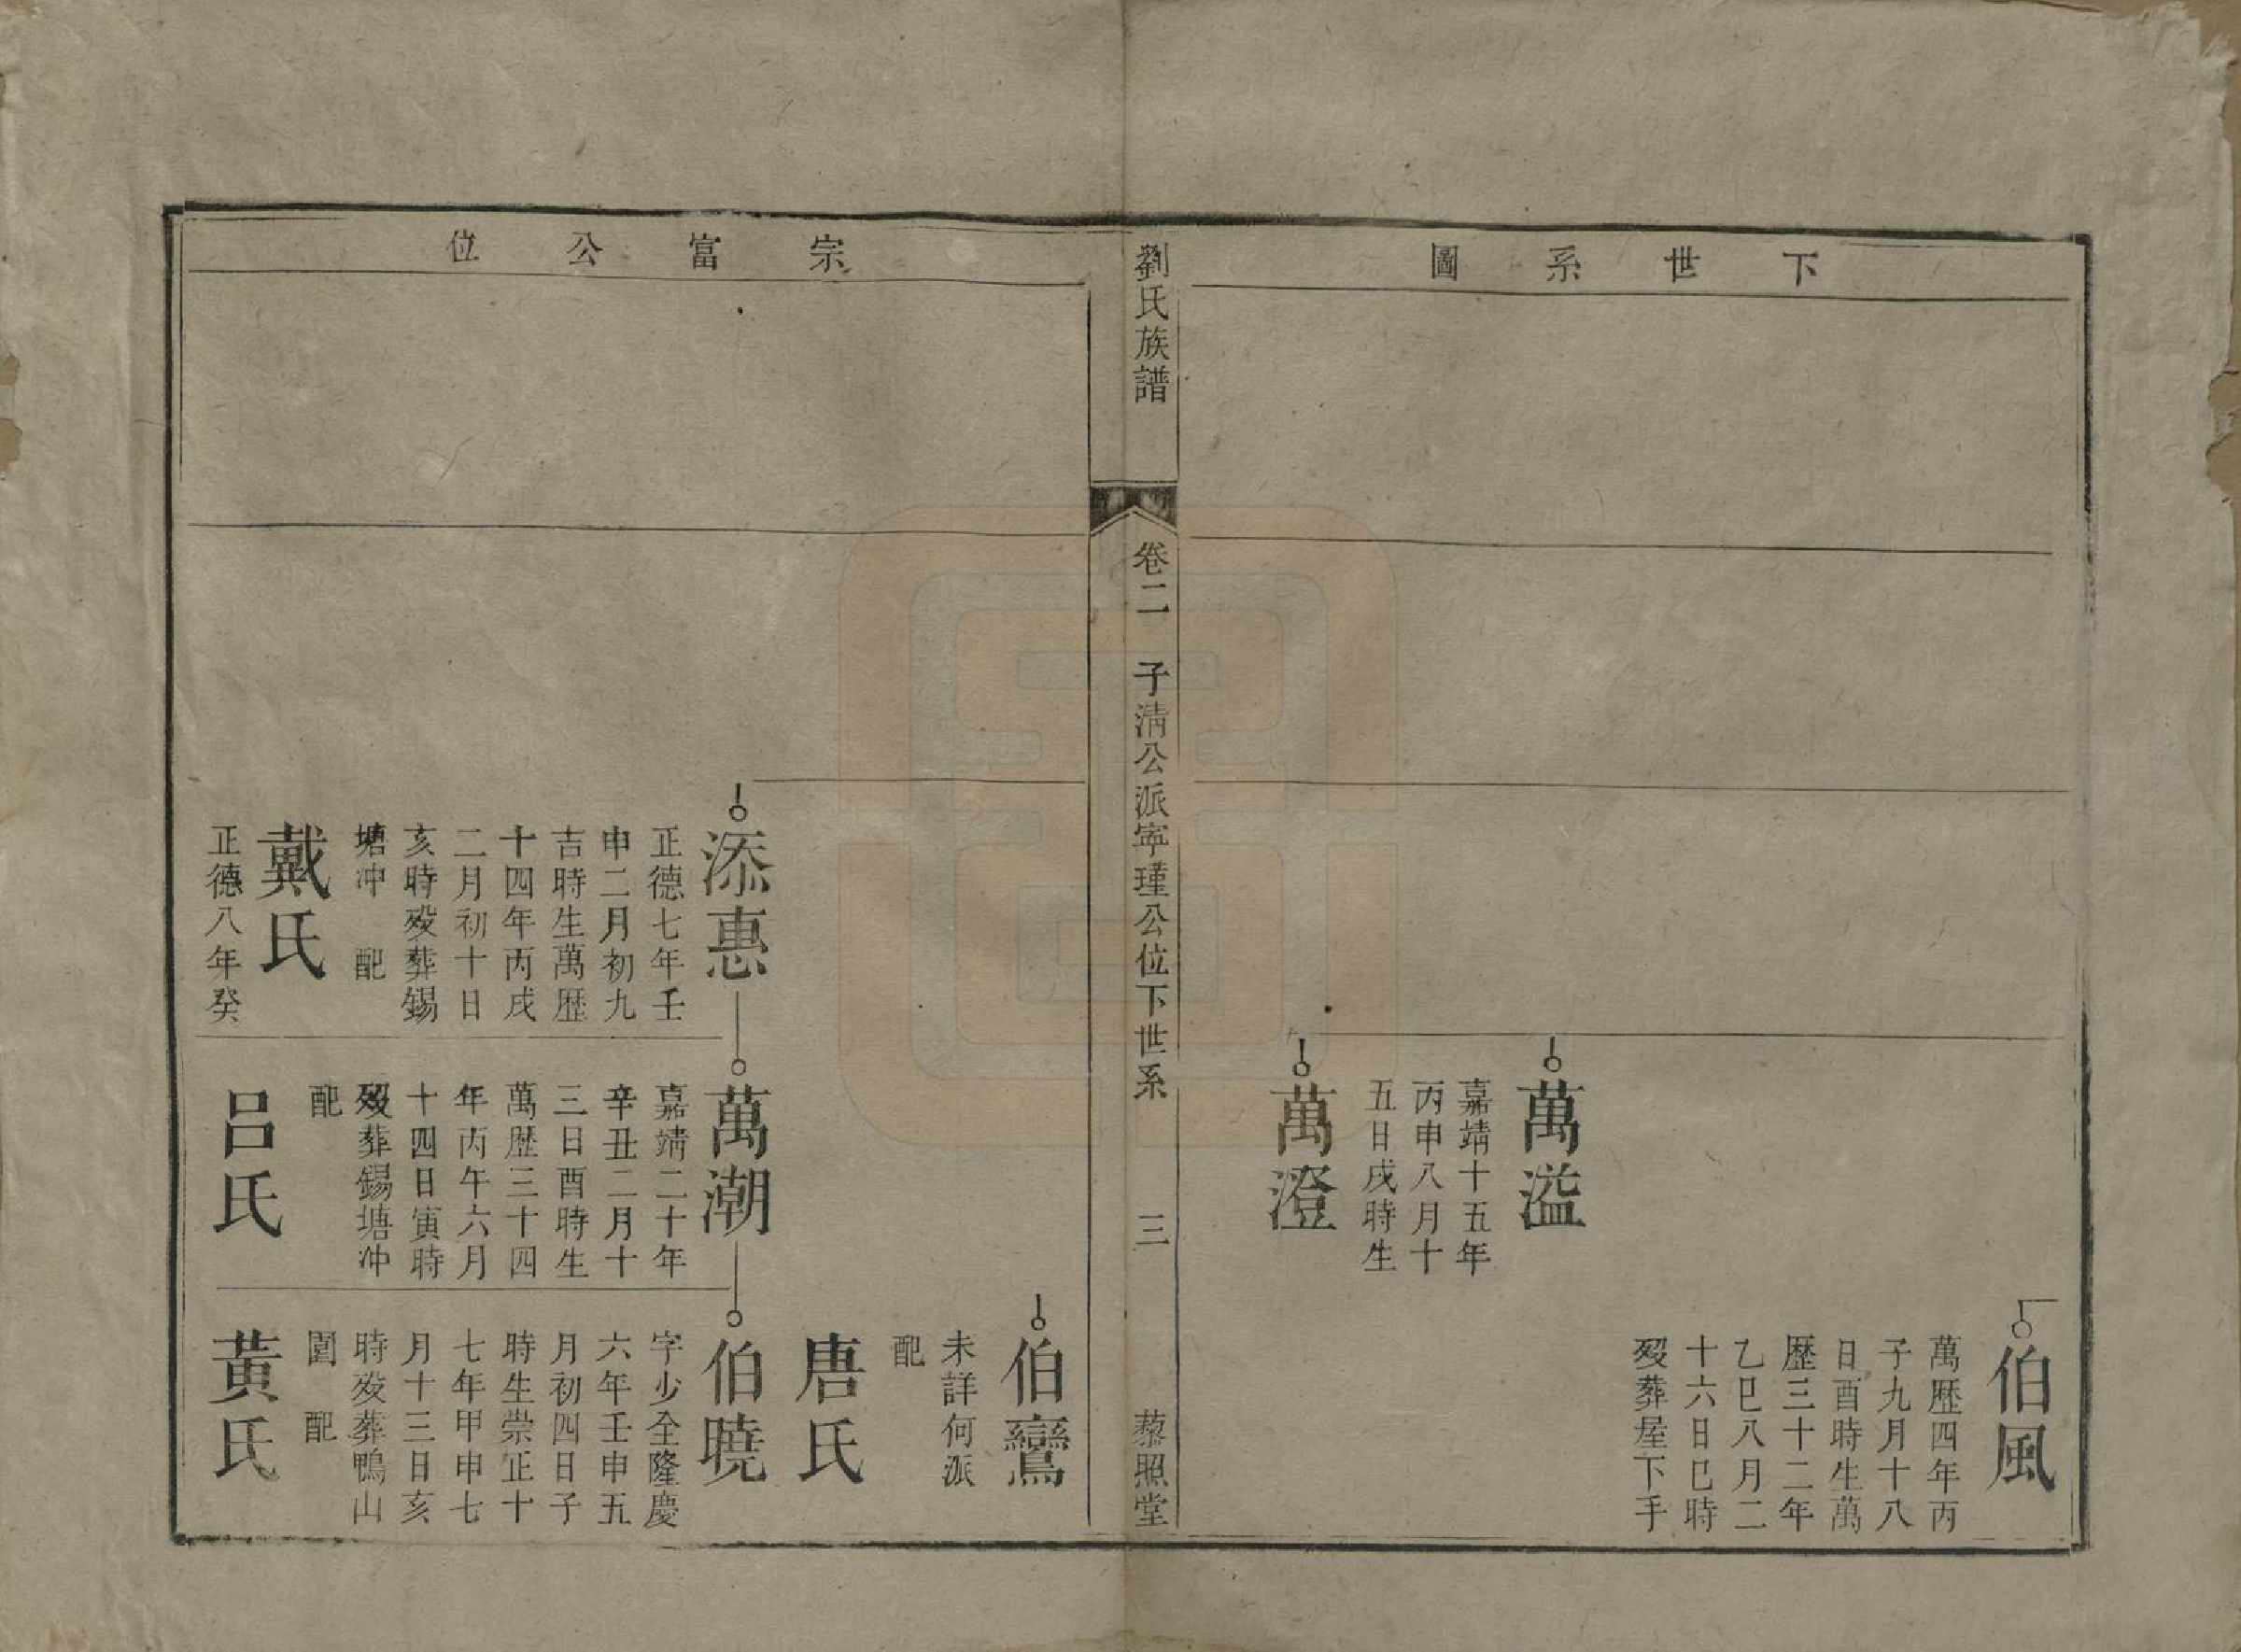 下世系圖
伯風
萬歴四年丙
子九月十八
日酉時生萬
歴三十二年
乙巳八月二
十六日巳時
歿葬屋下手
萬溢
嘉靖十五年
丙申八月十
五日戌時生
萬澄
劉氏族譜
卷二
子淸公派寜瑾公位下世系
三
藜照堂
宗富公位
伯鸞
未詳何派
配
唐氏
添惠
正德七年壬
申二月初九
吉時生萬歴
十四年丙戌
二月初十日
亥時歿葬錫
塘冲 配
戴氏
正德八年癸
萬潮
嘉靖二十年
辛丑二月十
三日酉時生
萬歴三十四
年丙午六月
十四日寅時
歿葬錫塘冲
配
呂氏
伯曉
字少全隆慶
六年壬申五
月初四日子
時生崇正十
七年甲申七
月十三日亥
時歿葬鴨山
圍 配
黃氏